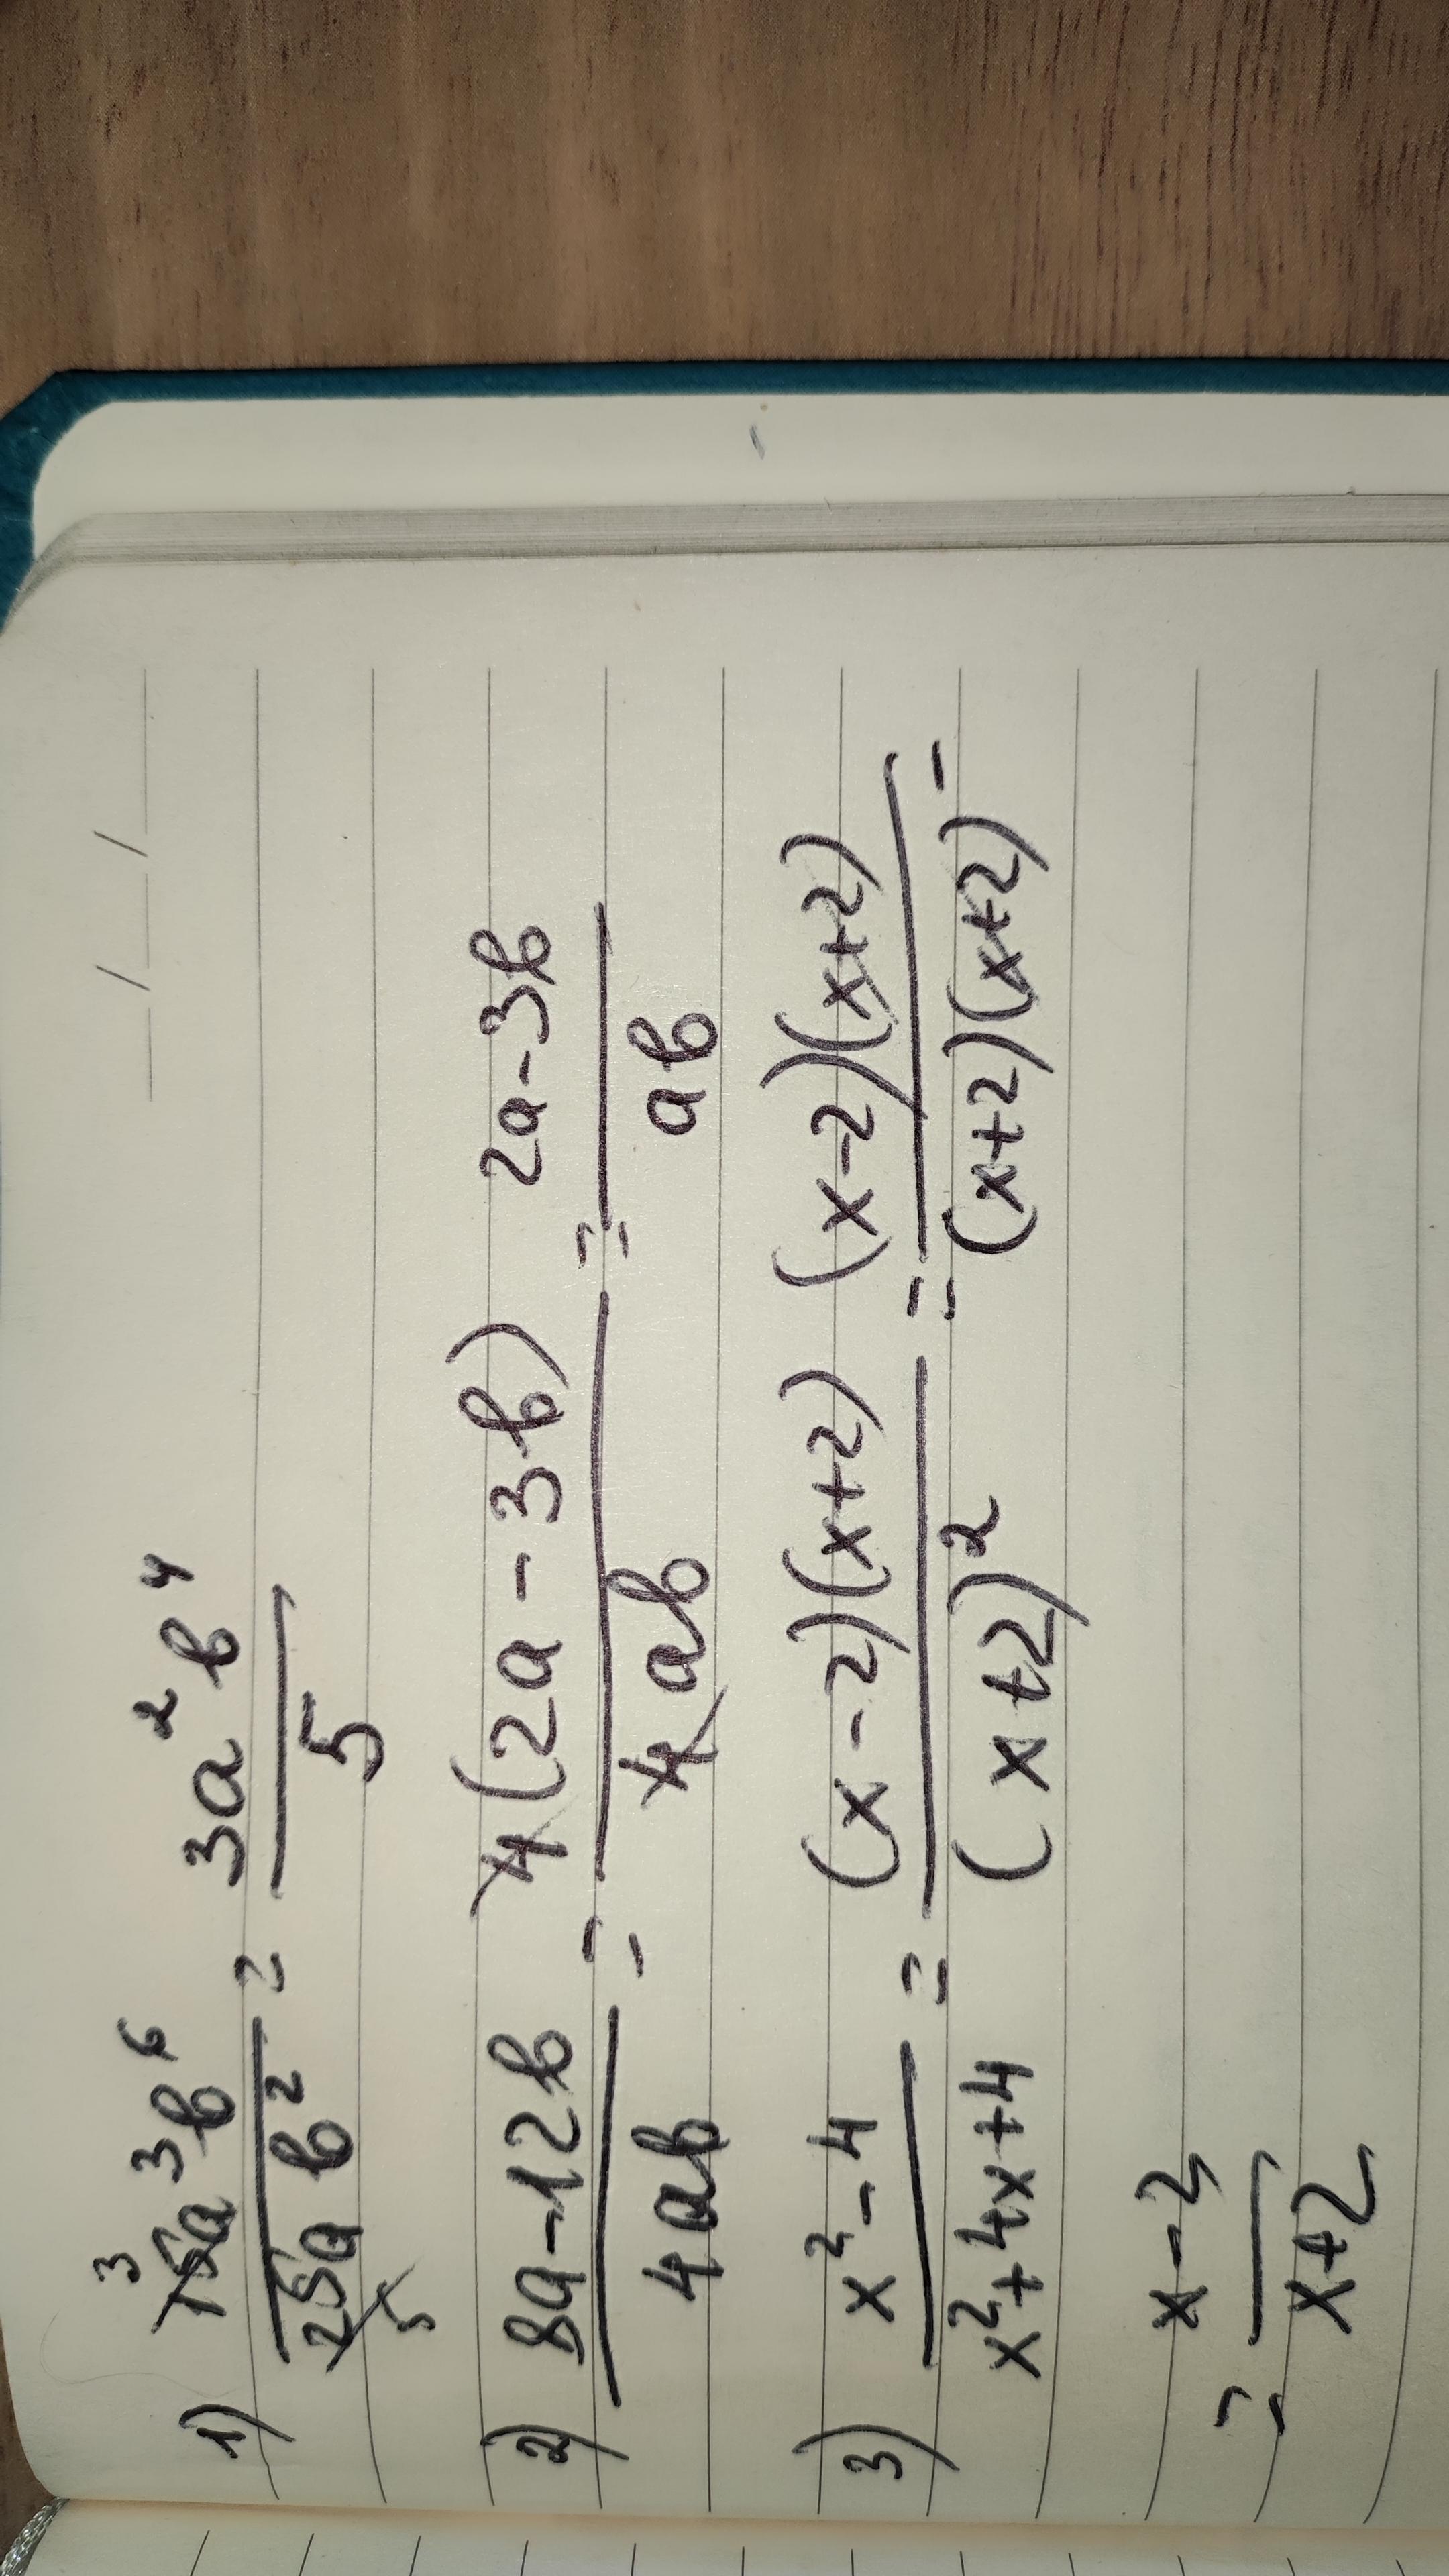 / /
1) 15a³b⁶ / 25ab² = 3a²b⁴ / 5
3
5
2) 8a-12b / 4ab = 4(2a-3b) / 4ab = 2a-3b / ab
3) x²-4 / x²+4x+4 = (x-2)(x+2) / (x+2)² = (x-2)(x+2) / (x+2)(x+2) -
= x-2 / x+2